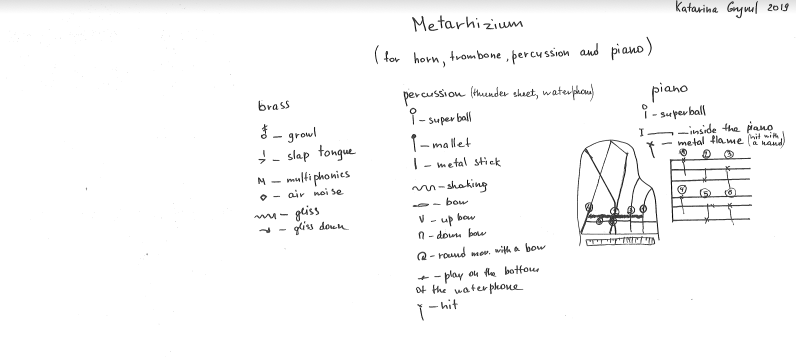 Katarina Gryvul 2019
Metarhizium
(for horn, trombone, percussion and piano)
brass
growl
slap tongue
M - multiphonics
air noise
gliss
gliss down
percussion (thunder sheet, waterphone)
superball
mallet
metal stick
shaking
bow
V - up bow
down bow
round mov. with a bow
play on the bottom
of the waterphone
hit
piano
superball
I - inside the piano
metal flame (hit with
a hand)
2 3
5 6